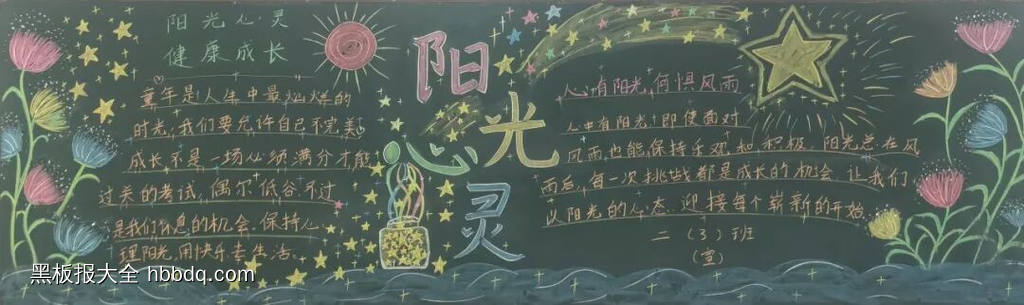 阳光心灵
健康成长
童年是人生中最灿烂的
时光,我们要允许自己不完美,
成长不是一场必须满分才能
过关的考试,偶尔低谷不过
是我们休息的机会,保持心
理阳光,用快乐去生活。
阳光心灵
心有阳光,何惧风雨
心中有阳光,即使面对
风雨也能保持乐观和积极,阳光总在风
雨后,每一次挑战都是成长的机会,让我们
以阳光的心态,迎接每个崭新的开始。
二(3)班
(宣)
黑板报大全 hbbdq.com